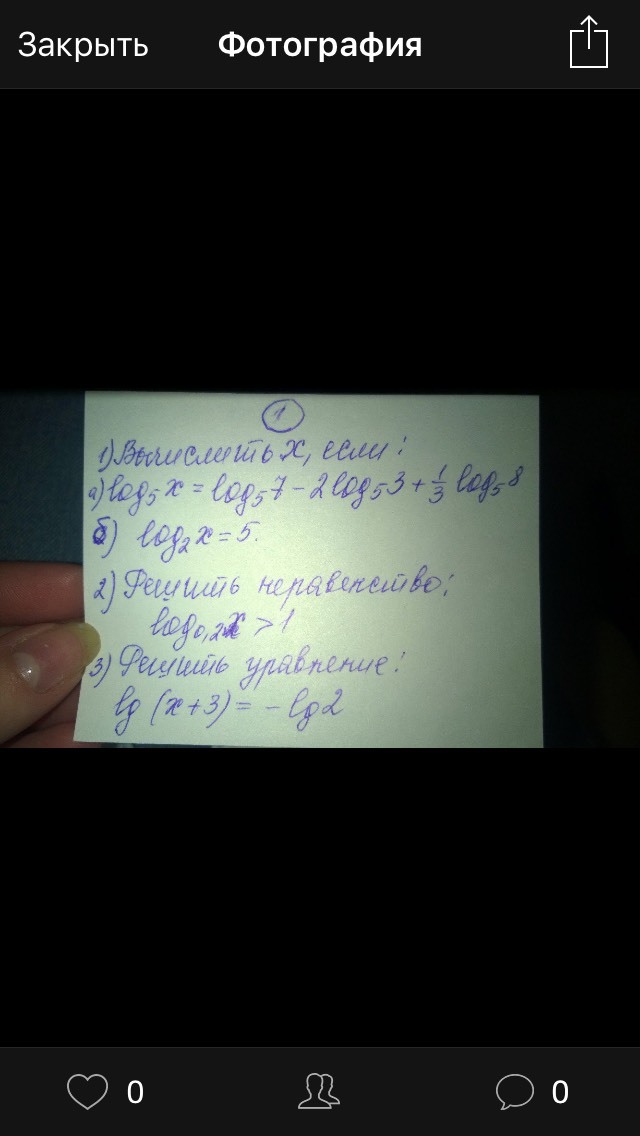 Закрыть Фотография
1
1) Вычислить x, если:
а) log₅x = log₅7 - 2log₅3 + 1/3 log₅8
б) log₂x = 5.
2) Решить неравенство:
log₀,₂x > 1
3) Решить уравнение:
lg (x+3) = - lg2
0 0